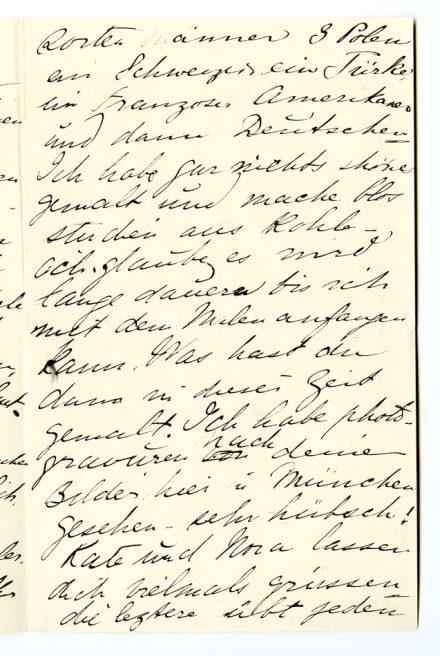 Sorten Männer 3 Polen
ein Schweizer ein Türke,
ein Franzose, Amerikaner
und dann Deutschen
Ich habe gar nichts schöne
gemalt und mache blos
studien aus Kohle-
ach, glaube es wird
lange dauern bis ich
mit dem Malen anfangen
kann. Was hast du
dann in dieser Zeit
gemalt. Ich habe photo-
gravuren nach deine
Bilder hier in München
gesehen - sehr hübsch!
Kate und Nora lassen
dich vielmals grüssen
die leztere übt jeden